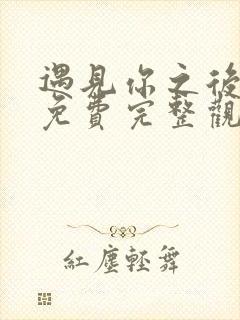 遇見你之後
免費完整觀
紅塵輕舞